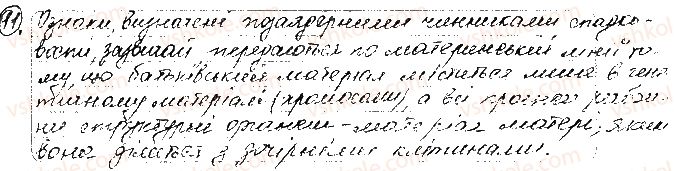 91. Ознаки, визначені позаядерними чинниками спадко-
вості, зазвичай передаються по материнській лінії то-
му що батьківський матеріал міститься лише в гене-
тичному матеріалі (хромосоми), а всі
структурні органели - матеріал матері, яким
вона ділиться з дочірніми клітинами.